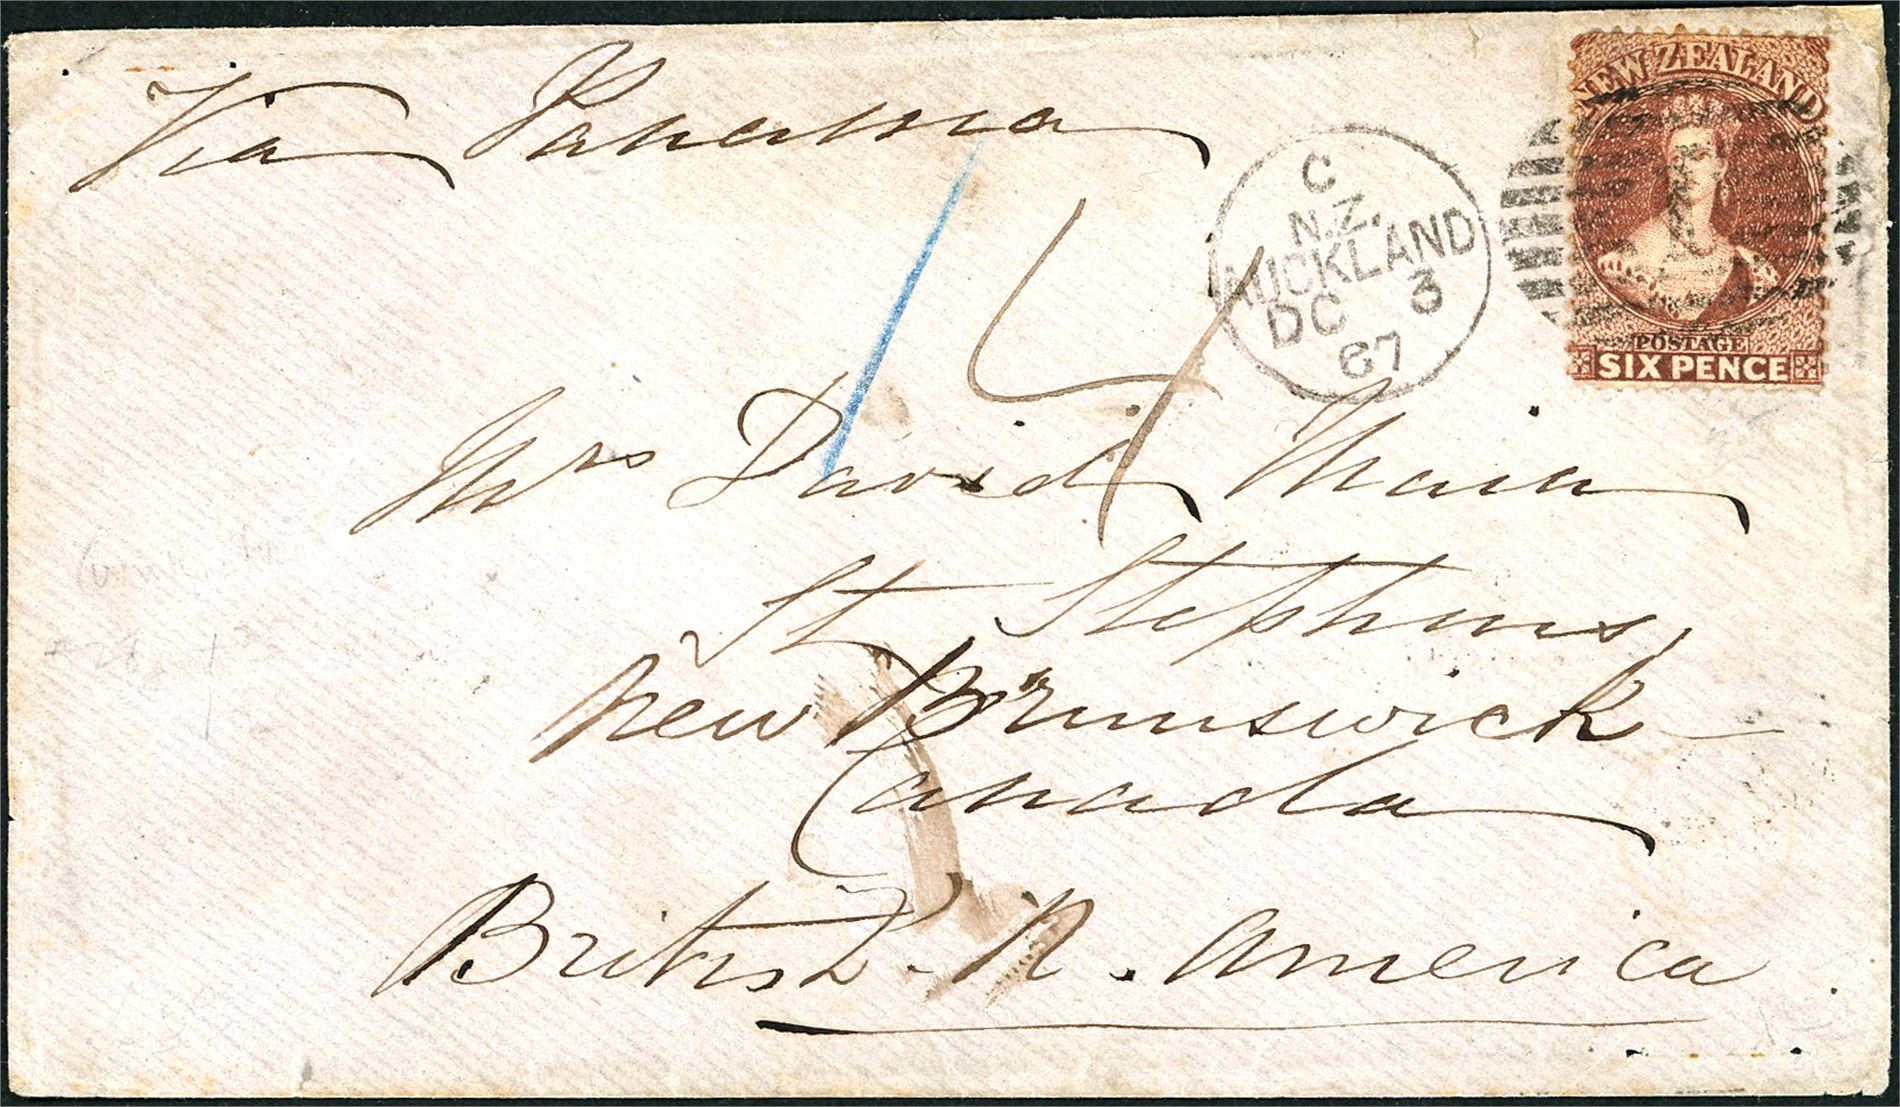 Via Panama
NEW ZEALAND
POSTAGE
SIX PENCE
C
N.Z.
AUCKLAND
DC 3
67
Mrs David Main
St Stephens,
New Brunswick
Canada
British N. America